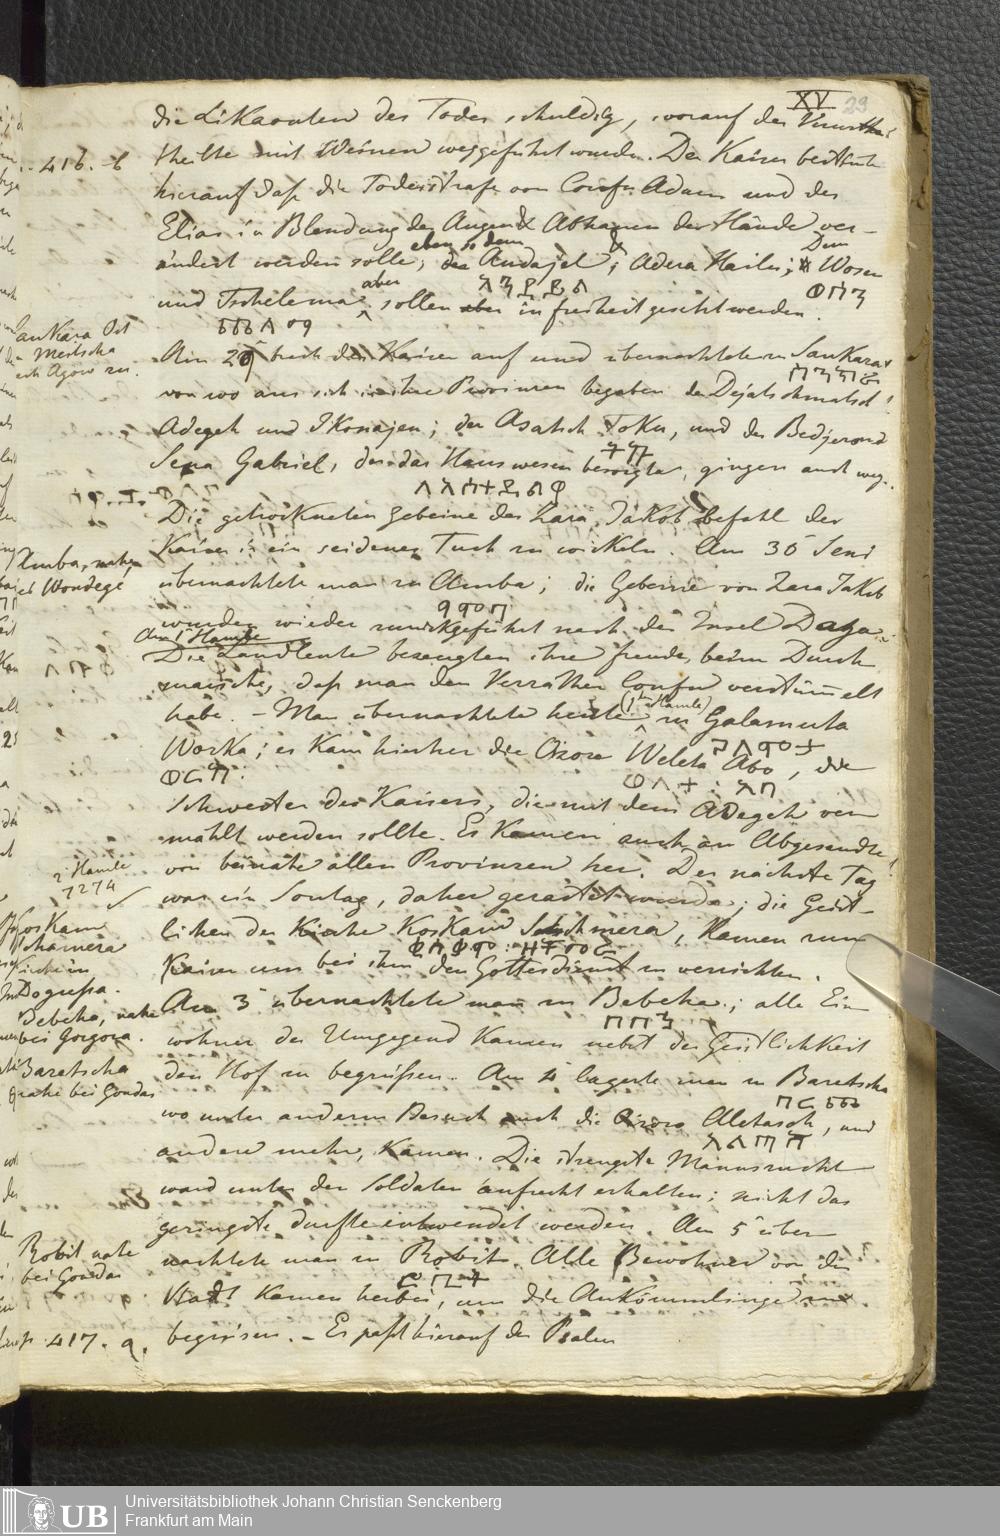 XV 29
die Likaonten des Todes schuldig, worauf der Verurtheil
p. 416. b
theilte mit Weinen weggeführt wurde. Der Kaiser bestimte
hierauf daß die Todesstrafe von Confu Adam und des
Elias in Blendung der Augen & Abhauen der Hände ver-
eben so dem
Dem
ändert werden solle; Andajel & Adera Hailu; Wosen
aber
und Tschelema sollen in freiheit gesetzt werden.
SanKara Ost
Mestscha
Agow
Am 29 brach der Kaiser auf und übernachtete in SanKara
von wo aus sich in ihre Provinzen begaben der Dejatschmatsch
Adegeh und IKonajen; der Asatsch ToKu, und der Bedjerond
Sena Gabriel, der das Hauswesen besorgte, gingen auch weg.
Die getrockneten Gebeine des Zara JaKob befahl der
Kaiser in ein seidenes Tuch zu wickeln. Am 30 Seni
Amba, nahe
bei Wondege
übernachtete man zu Amba; die Gebeine von Zara JaKob
wurden wieder zurückgeführt nach der Insel Daga.
Am 1 Hamle
Die Landleute bezeugten ihre freude beim Durch
marsche, daß man den Verräther Confu verstümelt
(1 Hamle)
habe. – Man übernachtete heute in Galamuta
WorKa; es Kam hierher die Oisoro Weleta Abo, die
ወርቅ:
Schwester des Kaisers, die mit dem Adegeh ver
mählt werden sollte. Es Kamen auch an Abgesandte
von beinahe allen Provinzen her. Der nächste Tag
2 Hamle
7274
war ein Sontag, daher gerastet wurde; die Geist-
KosKam
Tschamera
Kirche in
Dogussa.
lichen der Kirche KosKam Tschmera, Kamen zum
Kaiser um bei ihm den Gottesdienst zu verrichten.
Bebeka, nahe
bei Gorgora.
Am 3 übernachtete man in Bebeka; alle Ein
wohner der Umgegend Kamen nebst der Geistlichkeit
Baretscha
nahe bei Gondar
den Hof zu begrüßen. Am 4 lagerte man in Baretscha
wo unter anderm Besuch auch die Oisoro Aletasch, und
andere mehr, Kamen. Die strengste Mannszucht
ward unter den Soldaten aufrecht erhalten; nicht das
geringste durfte entwendet werden. Am 5 über
Robit nahe
bei Gondar
nachtete man in Robit. Alle Bewohner von der
ሮቢት
Stadt Kamen herbei, um die AnKömmlinge zu
p. 417. a.
begrüsen. – Es paßt hierauf der Psalm
UB
Universitätsbibliothek Johann Christian Senckenberg
Frankfurt am Main